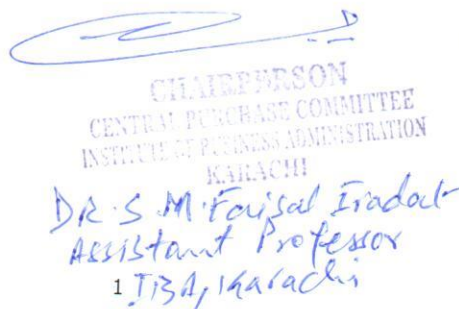 CHAIRPERSON
CENTRAL PURCHASE COMMITTEE
INSTITUTE OF BUSINESS ADMINISTRATION
KARACHI
DR. S. M. Faisal Iradat
Assistant Professor
1 IBA, Karachi